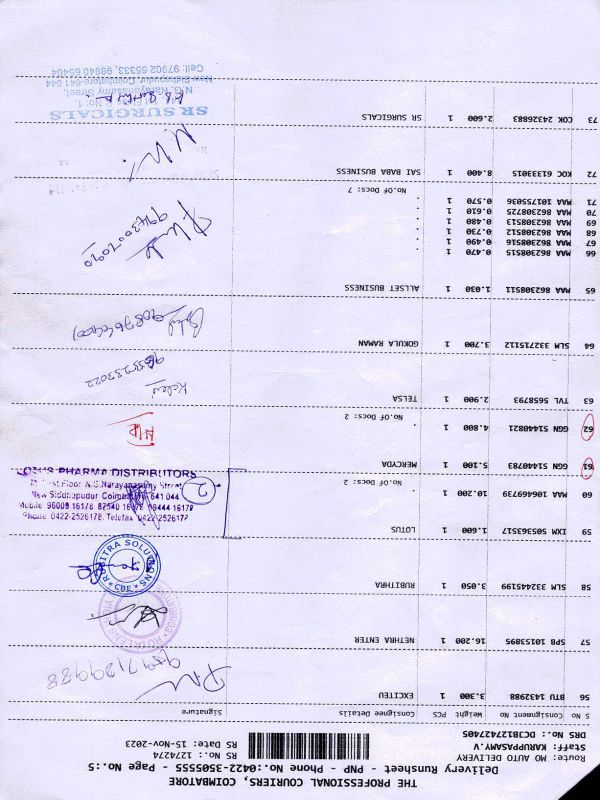 THE PROFESSIONAL COURIERS, COIMBATORE
Delivery Runsheet - PNP - Phone No.:0422-3505555 - Page No.:5
Route: MO AUTO DELIVERY
Staff: KARUPPASAMY.V
DRS No.: DCTB127427405
RS No.: 1274274
RS Date: 15-Nov-2023
S No Consignment No Weight PCS Consignee Details Signature
56 BTU 1432988 3.300 1 EXCITEU
9597129988
57 SPB 10153895 16.200 1 NETHRA ENTER
58 SLM 332245199 3.050 1 RUBITHRA
RUBMITRA SOLUTIONS
* CBE *
59 IXM 505363517 1.600 1 LOTUS
60 MAA 106469739 10.200 1 .
No.OF Docs: 2
2
LOTUS PHARMA DISTRIBUTORS
First Floor, N.G.Narayanasamy Street
New Siddhapudur Coimbatore 641 044
Mobile: 96009 16178 87540 16178 99444 16178
Phone: 0422-2526178, Telefax 0422-2526177
61 GGN 51440783 5.100 1 MERCYDA
62 GGN 51440821 4.800 1 .
No.OF Docs: 2
63 TVL 5658793 2.900 1 TELSA
64 SLM 332715112 3.700 1 GOKULA RAMAN
65 MAA 862308511 1.030 1 ALLSET BUSINESS
66 MAA 862308515 0.470 1 .
67 MAA 862308516 0.490 1 .
68 MAA 862308512 0.730 1 .
69 MAA 862308513 0.480 1 .
70 MAA 862308725 0.610 1 .
71 MAA 101755036 0.570 1 .
No.OF Docs: 7
9943007090
72 KOC 61333015 8.400 1 SAI BABA BUSINESS
73 COK 24326883 2.600 1 SR SURGICALS
SR SURGICALS
No: 1,
N.G. Narayanasamy Street,
New Sidhapudur, Coimbatore-641 044
Cell: 97902 55333, 98940 65404